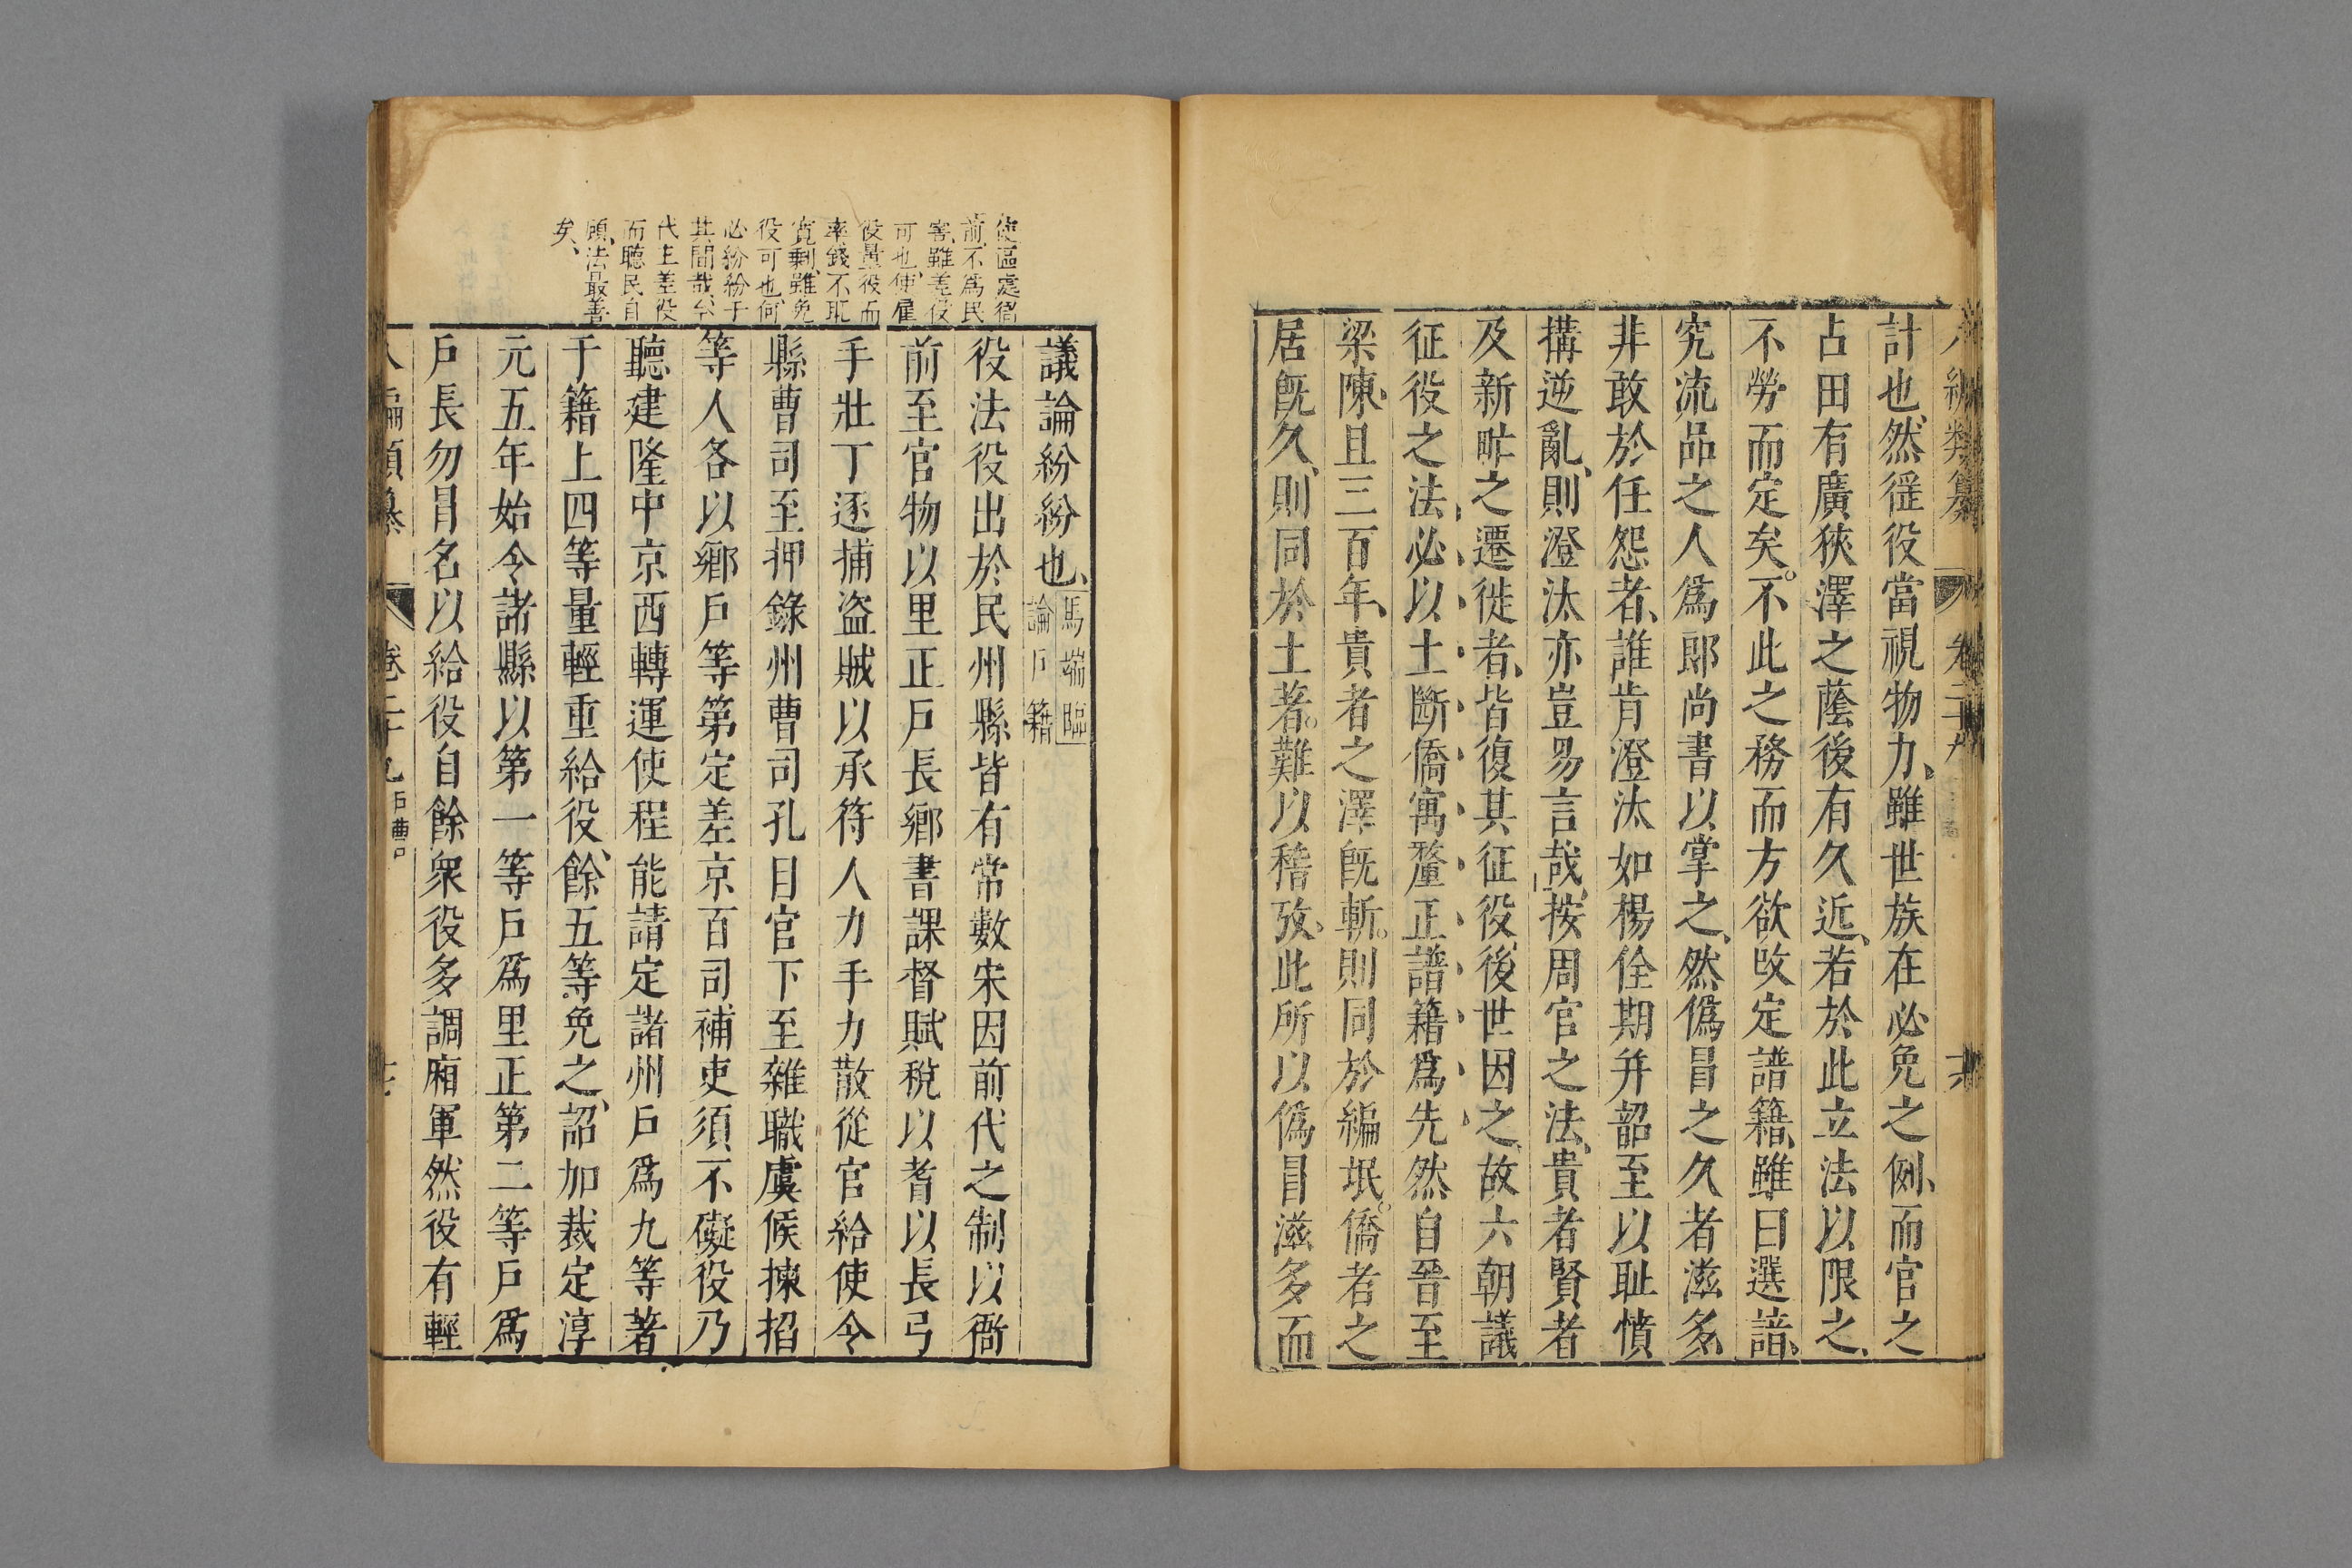 八編類纂 卷二十九
計也、然徭役當視物力、雖世族在必免之例、而官之
占田有廣狹澤之蔭後有久近、若於此立法以限之、
不勞而定矣。不此之務而方欲攺定譜籍、雖曰選諳、
究流品之人爲郎尚書以掌之、然僞冒之久者滋多、
非敢於任怨者、誰肯澄汰如楊佺期幷韶至以耻憤
搆逆亂、則澄汰亦豈易言哉、按周官之法、貴者賢者
及新甿之遷徙者、皆復其征役、後世因之、故六朝議
征役之法、必以土斷僑寓釐正譜籍爲先然自晉至
梁陳、且三百年、貴者之澤旣斬。則同於編氓。僑者之
居旣久、則同於土著。難以稽攷、此所以僞冒滋多而
使區處衙
前、不爲民
害、雖差役
可也、使雇
役量役而
率錢不取
寬剩、雖免
役可也、何
必紛紛于
其間哉、今
代上差役
而聽民自
顧、法最善
矣、
議論紛紛也、馬端臨
論戶籍
役法役出於民州縣皆有常數宋因前代之制以衙
前至官物以里正戶長鄉書課督賦稅以耆以長弓
手壯丁逐捕盜賊以承符人力手力散從官給使令
縣曹司至押錄州曹司孔目官下至雜職虞候揀招
等人各以鄉戶等第定差京百司補吏須不礙役乃
聽建隆中京西轉運使程能請定諸州戶爲九等著
于籍上四等量輕重給役、餘五等免之、詔加裁定淳
元五年始令諸縣以第一等戶爲里正第二等戶爲
戶長勿冒名以給役自餘衆役多調廂軍然役有輕
八編類纂 卷二十九